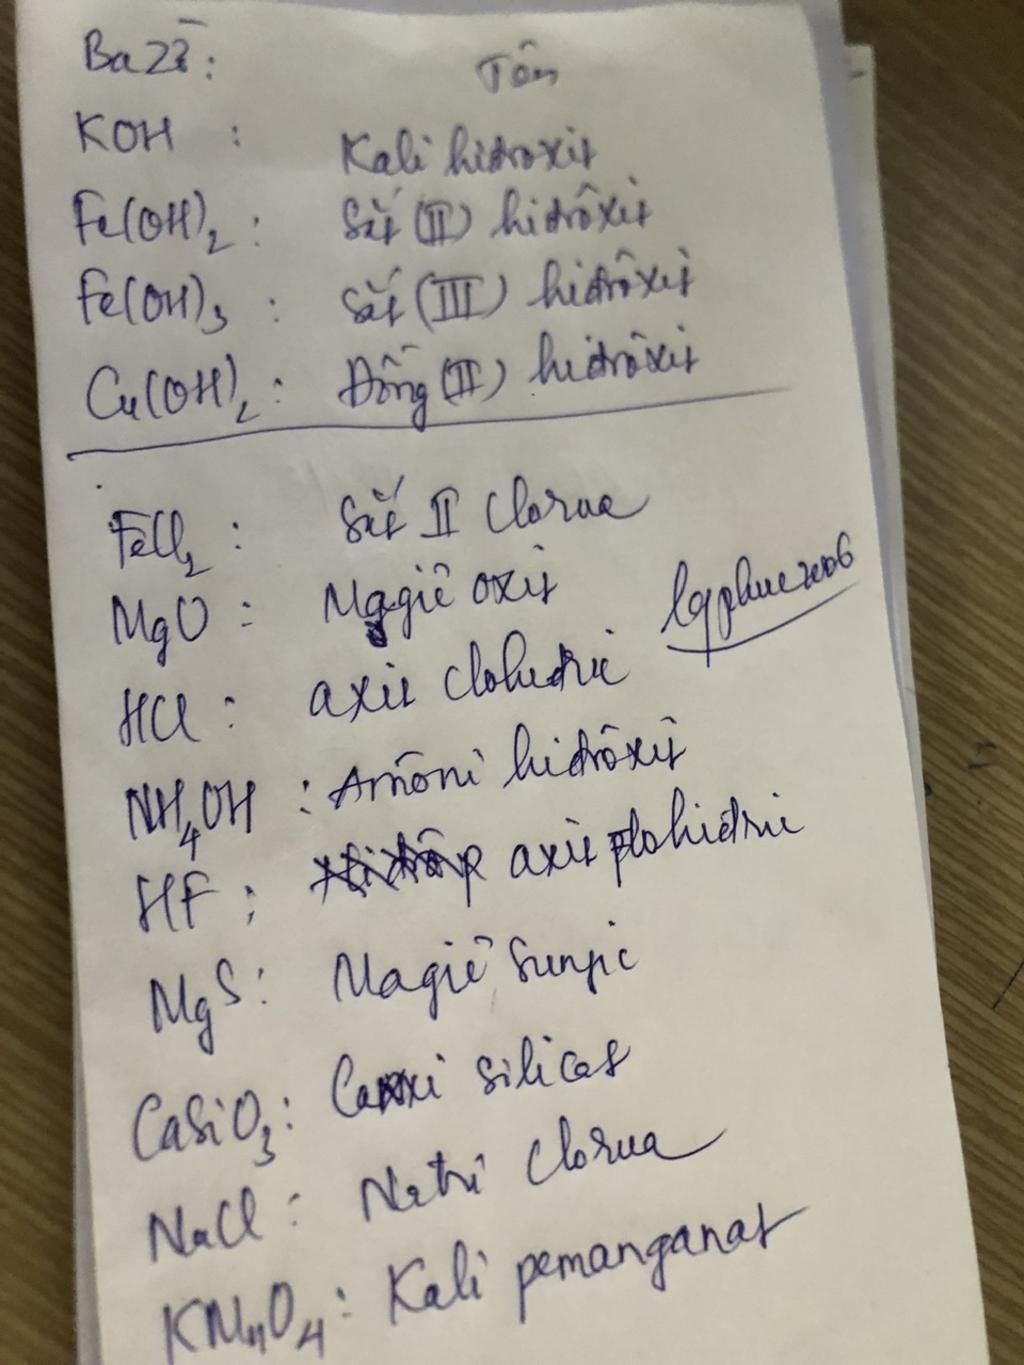 Bazơ: Tên
KOH : Kali hidroxit
Fe(OH)₂ : Sắt (II) hidrôxit
Fe(OH)₃ : Sắt (III) hidrôxit
Cu(OH)₂ : Đồng (II) hidrôxit
FeCl₂ : Sắt II Clorua
MgO : Magiê oxit
lqphuc2006
HCl : axit clohidric
NH₄OH : Amôni hidrôxit
HF : axit flohidric
MgS : Magiê Sunfic
CaSiO₃ : Canxi silicat
NaCl : Natri Clorua
KMnO₄ : Kali pemanganat